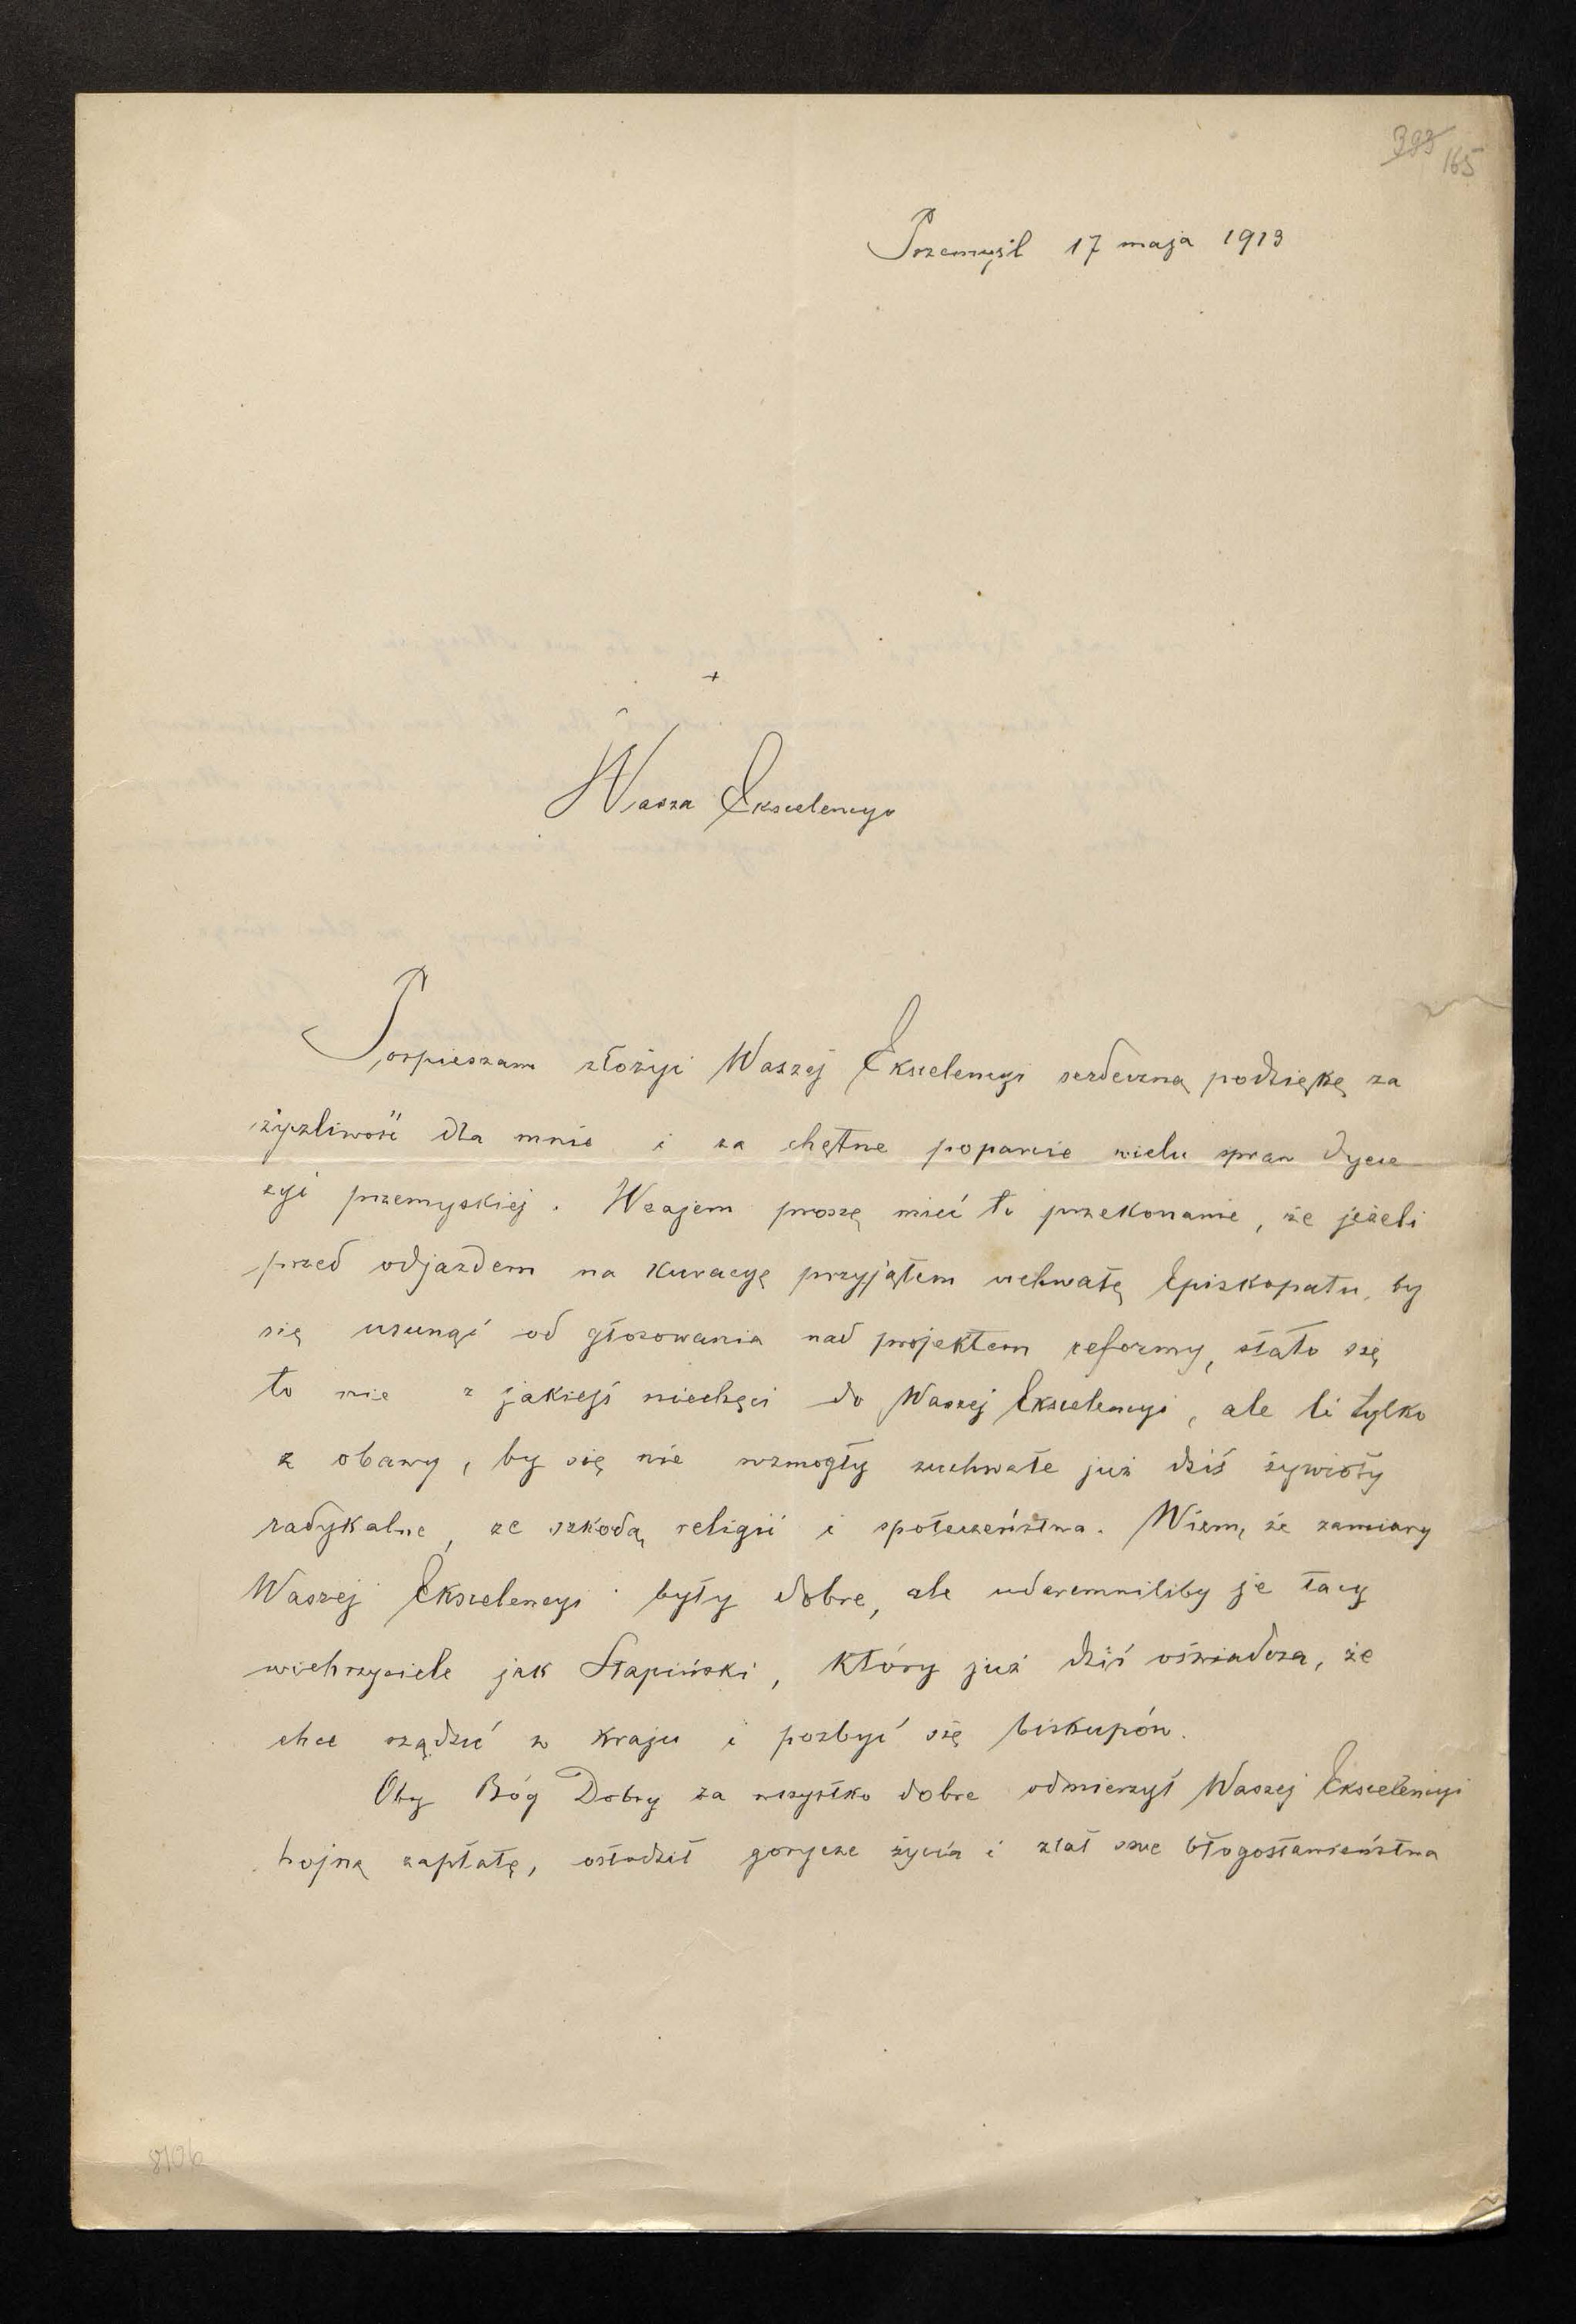 393
165
Przemyśl 17 maja 1913
+
Wasza Ekscelencyo
Pospieszam złożyć Waszej Ekscelencyi serdeczną podziękę za
życzliwość dla mnie i za chętne poparcie wielu spraw dyece
zyi przemyskiej. Wzajem proszę mieć to przekonanie, że jeżeli
przed odjazdem na kuracyę przyjąłem uchwałę Episkopatu, by
się usunąć od głosowania nad projektem reformy, stało się
to nie z jakiejś niechęci do Waszej Ekscelencyi, ale li tylko
z obawy, by się nie wzmogły zuchwałe już dziś żywioły
radykalne, ze szkodą religii i społeczeństwa. Wiem, że zamiary
Waszej Ekscelencyi były dobre, ale udaremniliby je tacy
wichrzyciele jak Stapiński, który już dziś oświadcza, że
chce rządzić w kraju i pozbyć się biskupów.
Oby Bóg Dobry za wszystko dobre odmierzył Waszej Ekscelencyi
hojną zapłatę, osłodził gorycze życia i zlał swe błogosławieństwa
8106